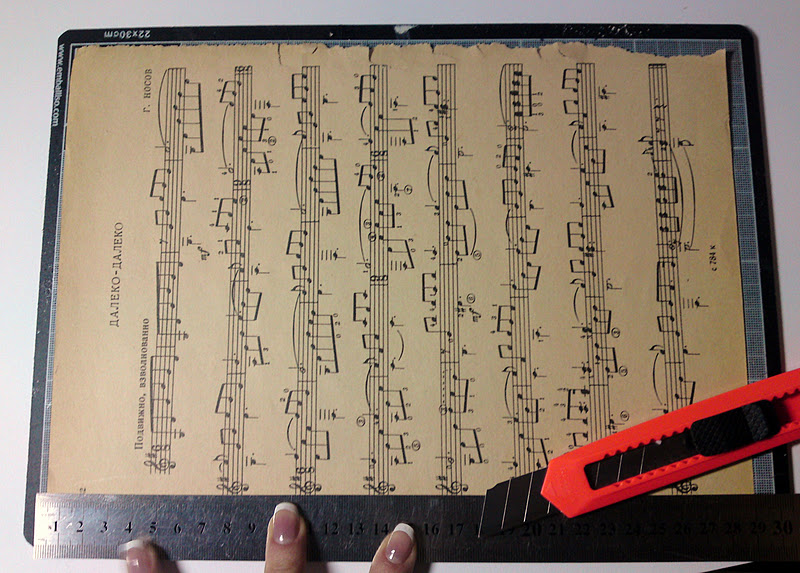 22x30cm
ДАЛЕКО-ДАЛЕКО
Г. НОСОВ
Подвижно, взволнованно
mf
mf
с 784 к
1 2 3 4 5 6 7 8 9 11 12 13 14 16 17 20 21 22 23 24 25 26 27 28 29 30